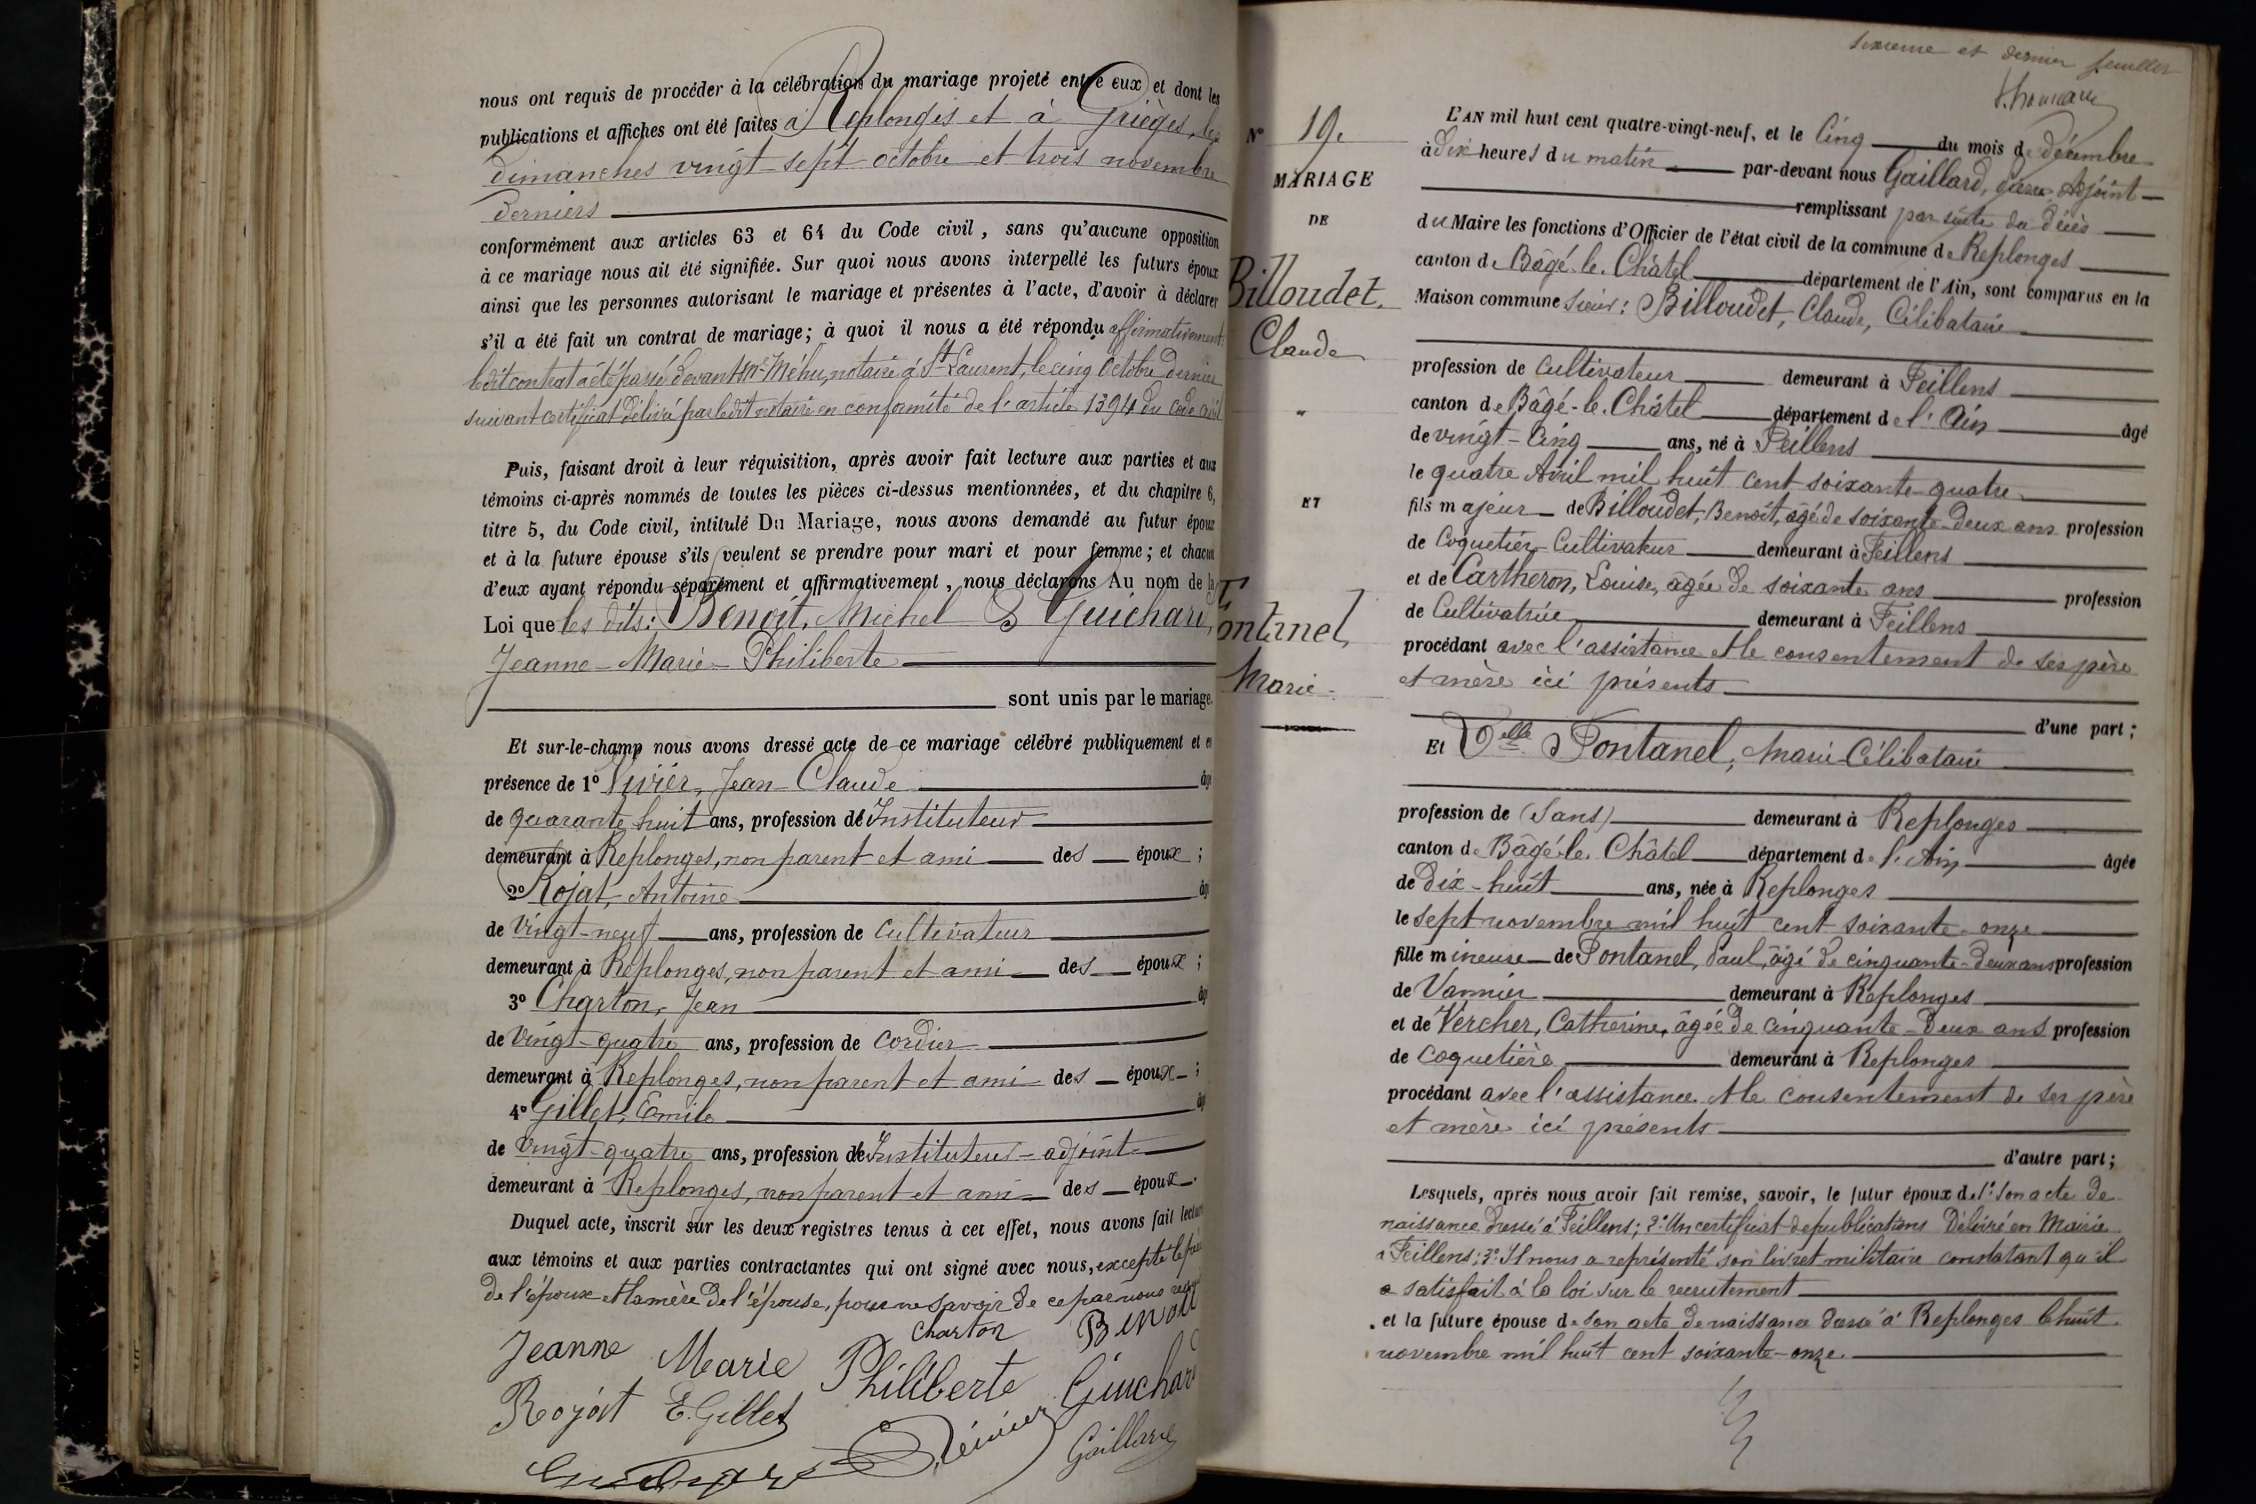 nous ont requis de procéder à la célébration du mariage projeté entre eux et dont les
publications et affiches ont été faites à Replonges et à Grièges, les
dimanches vingt-sept octobre et trois novembre
derniers
conformément aux articles 63 et 64 du Code civil, sans qu'aucune opposition
à ce mariage nous ait été signifiée. Sur quoi nous avons interpellé les futurs époux
ainsi que les personnes autorisant le mariage et présentes à l'acte, d'avoir à déclarer
s'il a été fait un contrat de mariage; à quoi il nous a été répondu affirmativement
ledit contrat a été passé devant Me Méhu, notaire à St Laurent, le cinq Octobre dernier
suivant certificat délivré par ledit notaire en conformité de l'article 1394 du code civil
Puis, faisant droit à leur réquisition, après avoir fait lecture aux parties et aux
témoins ci-après nommés de toutes les pièces ci-dessus mentionnées, et du chapitre 6,
titre 5, du Code civil, intitulé Du Mariage, nous avons demandé au futur époux
et à la future épouse s'ils veulent se prendre pour mari et pour femme; et chacun
d'eux ayant répondu séparément et affirmativement, nous déclarons Au nom de la
Loi que les dits: Benoit, Michel & Guichard,
Jeanne-Marie-Philiberte
sont unis par le mariage.
Et sur-le-champ nous avons dressé acte de ce mariage célébré publiquement et en
présence de 1° Vivier, Jean-Claude âgé
de quarante huit ans, profession de Instituteur
demeurant à Replonges, non parent et ami des époux;
2° Rojat, Antoine âgé
de Vingt-neuf ans, profession de Cultivateur
demeurant à Replonges, non parent et ami des époux;
3° Charton, Jean âgé
de Vingt-quatre ans, profession de Cordier
demeurant à Replonges, non parent et ami des époux;
4° Gillet, Emile âgé
de vingt-quatre ans, profession de Instituteur-adjoint
demeurant à Replonges, non parent et ami des époux.
Duquel acte, inscrit sur les deux registres tenus à cet effet, nous avons fait lecture
aux témoins et aux parties contractantes qui ont signé avec nous, excepté le père
de l'époux et la mère de l'épouse, pour ne savoir de ce par nous requis
Charton Benoit
Jeanne Marie Philiberte Guichard
Rojat E. Gillet
Vivier Gaillard
et dernier feuillet
N° 19.
MARIAGE
DE
Billoudet,
Claude
ET
Fontanel,
Marie
L'AN mil huit cent quatre-vingt-neuf, et le Cinq du mois de décembre
à dix heures du matin par-devant nous Gaillard, Adjoint
remplissant par suite du décès
du Maire les fonctions d'Officier de l'état civil de la commune de Replonges
canton de Bâgé-le-Châtel département de l'Ain, sont comparus en la
Maison commune Sieur: Billoudet, Claude, Célibataire
profession de Cultivateur demeurant à Feillens
canton de Bâgé-le-Châtel département de l'Ain âgé
de vingt-cinq ans, né à Feillens
le quatre Avril mil huit cent soixante-quatre
fils majeur de Billoudet, Benoît, âgé de soixante-deux ans profession
de Coquetier-Cultivateur demeurant à Feillens
et de Cartheron, Louise, âgée de soixante ans profession
de Cultivatrice demeurant à Feillens
procédant avec l'assistance et le consentement de ses père
et mère ici présents
d'une part;
Et Delle Fontanel, Marie-Célibataire
profession de (Sans) demeurant à Replonges
canton de Bâgé-le-Châtel département de l'Ain âgée
de Dix-huit ans, née à Replonges
le sept novembre mil huit cent soixante-onze
fille mineure de Fontanel, Paul, âgé de cinquante-deux ans profession
de Vannier demeurant à Replonges
et de Vercher, Catherine, âgée de cinquante-deux ans profession
de coquetière demeurant à Replonges
procédant avec l'assistance et le consentement de ses père
et mère ici présents
d'autre part;
Lesquels, après nous avoir fait remise, savoir, le futur époux de 1° Son acte de
naissance dressé à Feillens; 2° Un certificat de publications Délivré en Mairie
à Feillens; 3° Il nous a représenté son livret militaire constatant qu'il
a satisfait à la loi sur le recrutement
et la future épouse de son acte de naissance dressé à Replonges le huit
novembre mil huit cent soixante-onze.